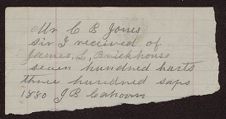 Mr C E Jones
Sir I received of
James, S, Brickhouse
seven hundred harts
three hundred saps
1880 J B Cahoon